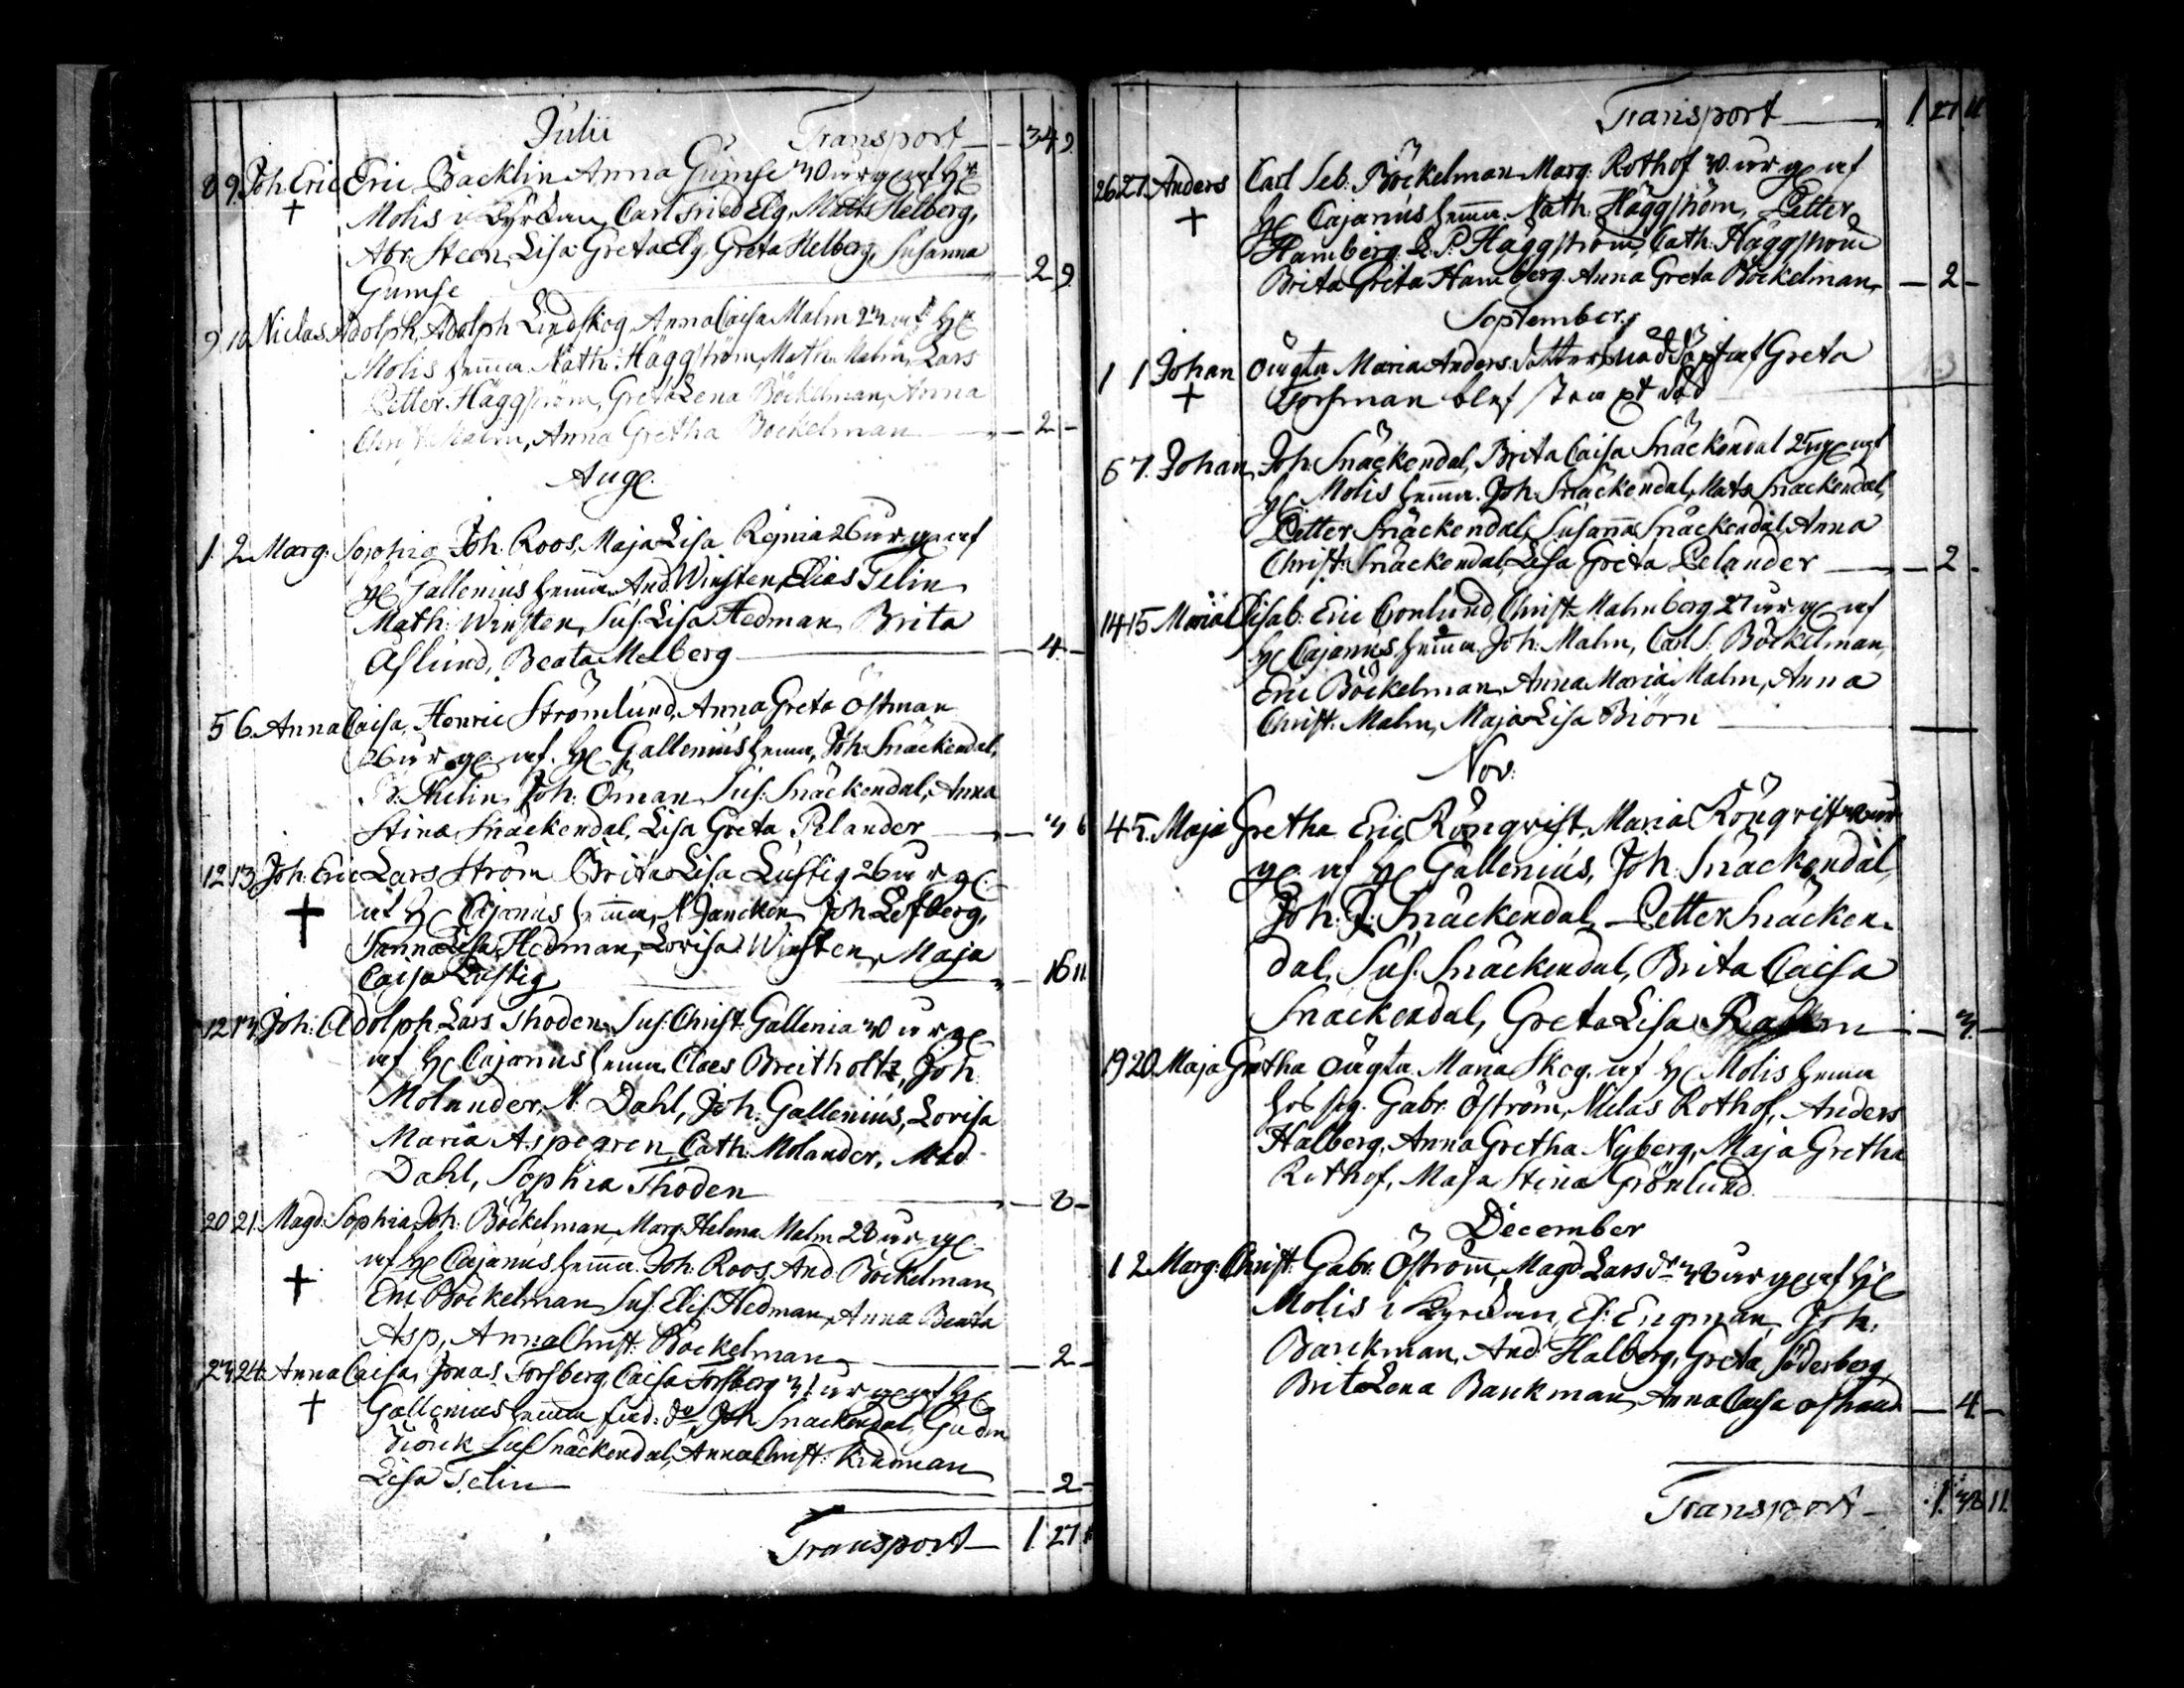 Julii Transport 34 9.
8 9 Joh: Eric Eric Backlin Anna Gumse 30 år gl af Hr
Molis i Kyrckan, Carl Fried Elg, Matts Helberg,
Abr: Steen, Lisa Greta Elg, Greta Helberg, Susanna
Gumse 2 9.
9 10 Niclas Adolph, Adolph Lindskog, Anna Caisa Malm 23 af Hr
Molis hemma. Math: Häggström, Math: Malm, Lars
Petter Häggström, Greta Lena Böckelman, Anna
Christ: Malm, Anna Gretha Böckelman 2 -
Aug.
1 2 Marg: Sophia Joh. Roos, Maja Lisa 26 år gl af
H Gallenius hemma. And. Winsten, Elias Telin
Math: Winsten, Sus. Lisa Hedman, Brita
Åslund, Beata Melberg 4 -
5 6. Anna Caisa, Henric Strömlund, Anna Greta Östman
26 år gl. af. H Gallenius hemma, Joh: Snäckendal,
Joh: Öman, Sus: Snäckendal, Anna
Stina Snäckendal, Lisa Greta Pelander 3 6
12 13 Joh: Eric Lars Ström Brita Lisa Lustig 26 år gl
af H Cajanus hemma, N. Jancken, Joh Lefberg,
Hedman, Lovisa Winsten, Maja
Caisa Lustig 16 11.
12 13 Joh: Adolph, Lars Thoden, Sus: Christ: Gallenia 30 år gl
af H Cajanus hemma. Claes Breitholtz, Joh.
Molander, N. Dahl, Joh. Gallenius, Lovisa
Maria Aspegren, Cath: Molander, Mad
Dahl, Sophia Thoden 8 -
20 21. Magd: Sophia, Joh: Böckelman, Marg: Helena Malm 28 år gl
af H Cajanus hemma. Joh. Roos, And. Böckelman,
Eric Böckelman, Sus: Elis. Hedman, Anna Beata
Asp, Anna Christ: Böckelman 2 -
23 24. Anna Caisa, Jonas Forsberg, Caisa Forsberg 31 år gl af H
Gallenius hemma Joh Snäckendal,
Sus Snäckendal, Anna Christ:
Lisa Telin 2 -
Transport 1 27
Transport 1. 27 11
26 27. Anders Carl Seb: Böckelman Marg: Rothof 30. år gl af
H Cajanus hemma. Math: Häggström, Petter
Hamberg, L. P. Häggström, Cath: Häggström
Brita Greta Hamberg. Anna Greta Böckelman 2 -
September
1 1 Johan Oägta Maria Anders dotter nöddöpt af Greta
Forsman blef straxt död
6 7. Johan, Joh. Snäckendal, Brita Caisa Snäckendal 25 gl af
H Molis hemma. Joh: Snäckendal, Mats Snäckendal,
Petter Snäckendal, Susanna Snäckendal, Anna
Christ: Snäckendal, Lisa Greta Pelander 2 -
14 15 Maria Elisab: Eric Cronlund, Christ: Malmberg 27 år gl af
H Cajanus hemma. Joh: Malm, Carl S: Böckelman,
Eric Böckelman, Anna Maria Malm, Anna
Christ: Malm, Maja Lisa Biörn
Nov:
4 5. Maja Gretha Eric Rönqvist, Maria Rönqvist år
gl af H Gallenius, Joh. Snäckendal,
Joh: J: Snäckendal, Petter Snäcken-
dal, Sus: Snäckendal, Brita Caisa
Snäckendal, Greta Lisa 3 -
19 20. Maja Gretha oägta. Maria Skog. af H Molis hemma
hos sig. Gabr. Öström, Niclas Rothof, Anders
Halberg, Anna Gretha Nyberg, Maja Gretha
Rothof, Maja Stina Grönlund
December
1 2 Marg: Christ: Gabr. Öström, Magd Lars dr 38 år gl af H
Molis i Kyrckan, Es: Engman, Joh.
Banckman, And. Halberg, Greta Söderberg
Brita Lena Banckman, Anna Caisa 4 -
Transport 1. 38 11.